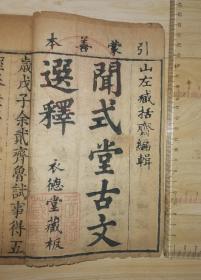 引蒙善本
山左臧括齋編輯
聞式堂古文
選釋
衣德堂藏板
歲戊子余貳齊魯試事得五